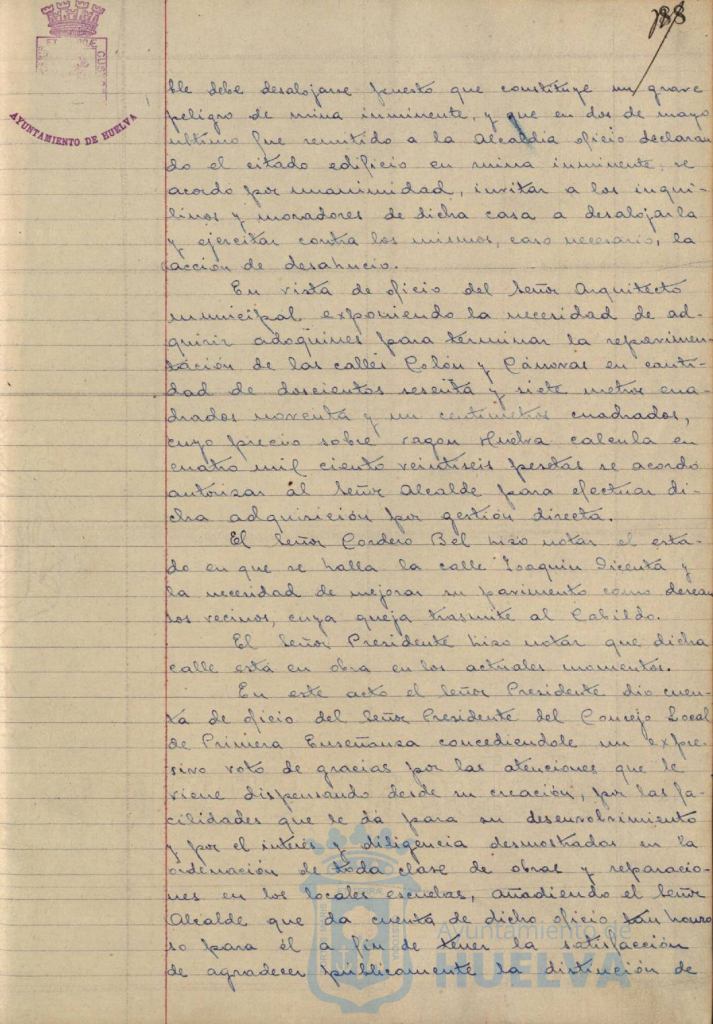 188
AYUNTAMIENTO DE HUELVA
ble debe desalojarse puesto que constituye un grave
peligro de ruina inminente, y que en dos de mayo
último fue remitido a la Alcaldía oficio declaran
do el citado edificio en ruina inminente, se
acordó por unanimidad, invitar a los inqui-
linos y moradores de dicha casa a desalojarla
y ejercitar contra los mismos, caso necesario, la
acción de desahucio.
En vista de oficio del Señor Arquitecto
municipal exponiendo la necesidad de ad-
quirir adoquines para terminar la repavimen-
tación de las calles Colón y Cánovas en canti-
dad de doscientos sesenta y siete metros cua-
drados noventa y un centímetros cuadrados,
cuyo precio sobre vagon Huelva calcula en
cuatro mil ciento veintiseis pesetas se acordó
autorizar al Señor Alcalde para efectuar di-
cha adquisición por gestión directa.
El Señor Cordero Bel hizo notar el esta-
do en que se halla la calle Joaquin Dicenta y
la necesidad de mejorar su pavimento como desean
los vecinos, cuya queja trasmite al Cabildo.
El Señor Presidente hizo notar que dicha
calle está en obra en los actuales momentos.
En este acto el Señor Presidente dio cuen-
ta de oficio del Señor Presidente del Consejo Local
de Primera Enseñanza concediendole un expre-
sivo voto de gracias por las atenciones que le
viene dispensando desde su creación, por las fa-
cilidades que le dá para su desenvolvimiento
y por el interés y diligencia desmostrados en la
ordenación de toda clase de obras y reparacio-
nes en los locales escuelas, añadiendo el Señor
Alcalde que da cuenta de dicho oficio tan honro
so para él a fin de tener la satisfacción
de agradecer publicamente la distinción de
Ayuntamiento de
HUELVA